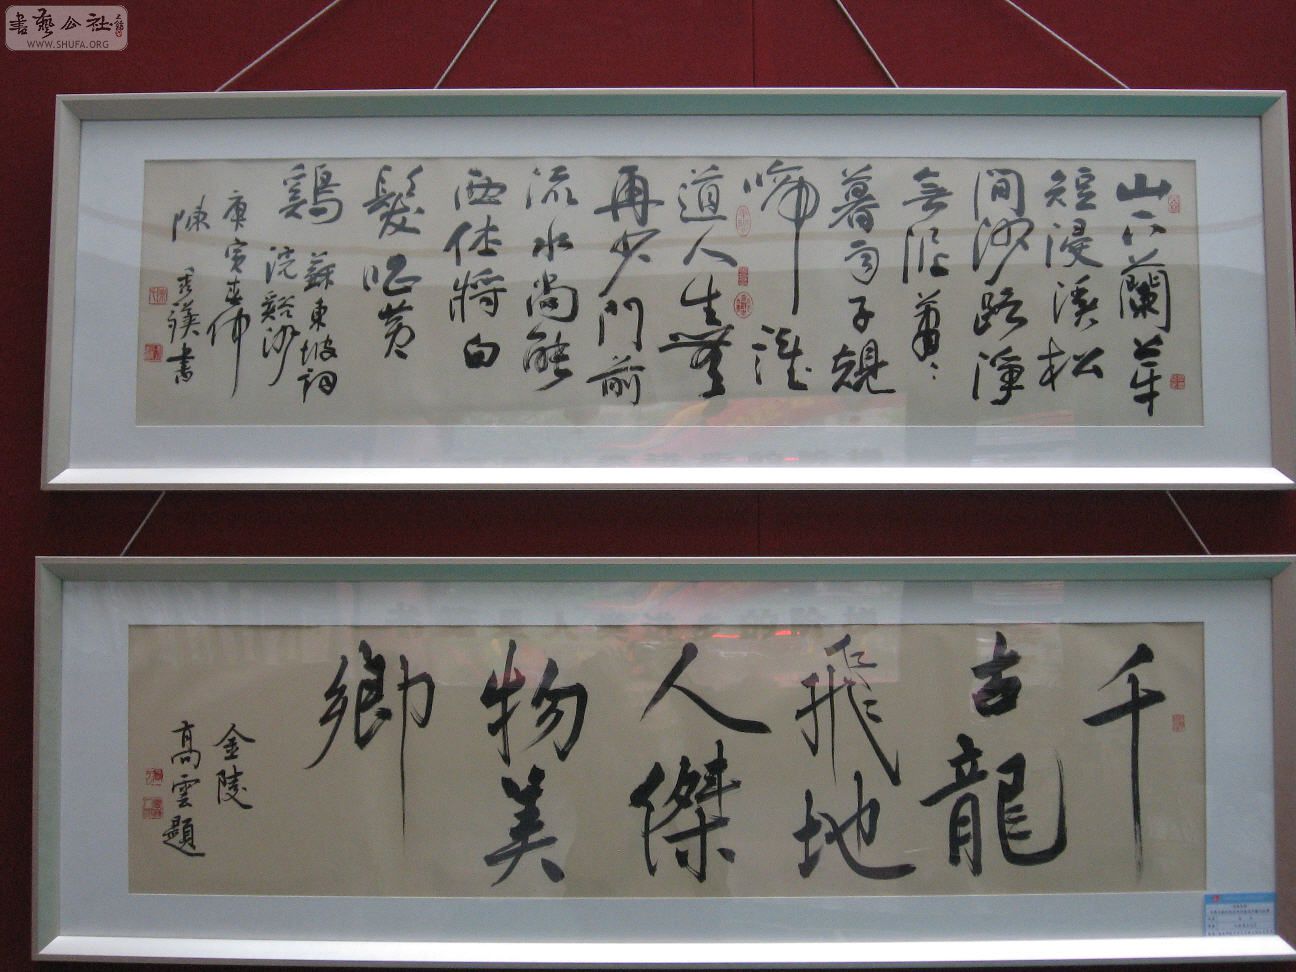 書藝公社
WWW.SHUFA.ORG
山下蘭芽
短浸溪松
間沙路淨
無泥蕭〻
暮雨子規
啼誰
道人生無
再少門前
流水尚能
西休將白
髮唱黃
鷄
蘇東坡詞
浣谿沙
庚寅春
陳書
千
古龍
飛地
人傑
物美
鄉
金陵
高雲題